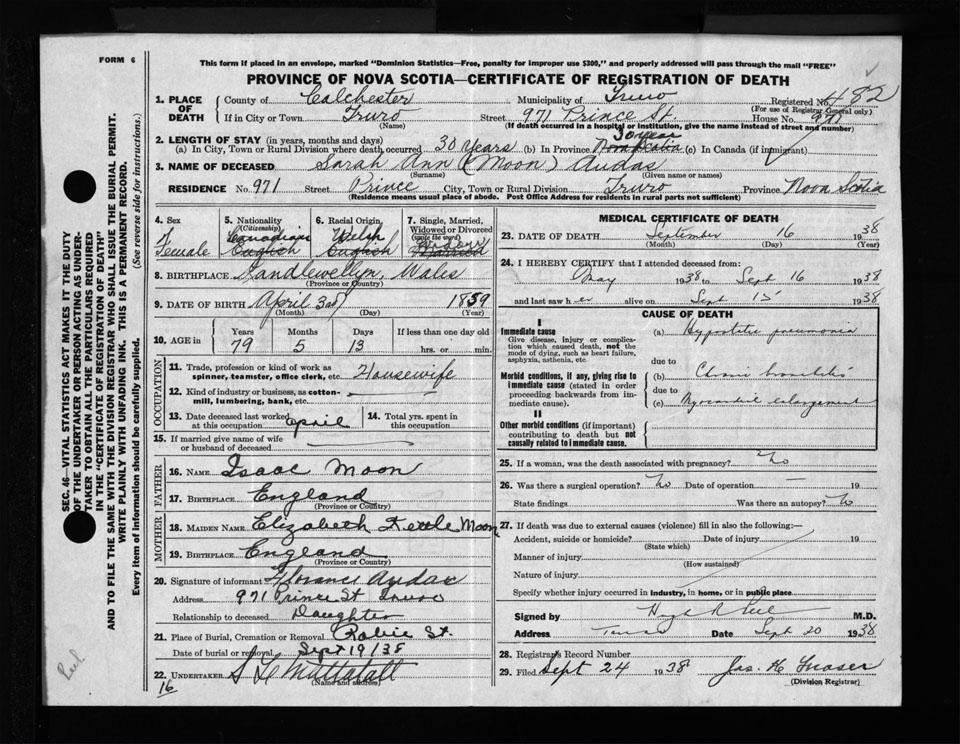 FORM 6
This form if placed in an envelope, marked "Dominion Statistics—Free, penalty for improper use $300," and properly addressed will pass through the mail "FREE"
PROVINCE OF NOVA SCOTIA—CERTIFICATE OF REGISTRATION OF DEATH
SEC. 46—VITAL STATISTICS ACT MAKES IT THE DUTY
OF THE UNDERTAKER OR PERSON ACTING AS UNDER-
TAKER TO OBTAIN ALL THE PARTICULARS REQUIRED
IN THE "CERTIFICATE OF REGISTRATION OF DEATH"
AND TO FILE THE SAME WITH THE DIVISION REGISTRAR WHO SHALL ISSUE THE BURIAL PERMIT.
WRITE PLAINLY WITH UNFADING INK. THIS IS A PERMANENT RECORD.
Every item of Information should be carefully supplied. (See reverse side for instructions.)
1. PLACE OF DEATH
County of Colchester Municipality of Truro Registered No. 482
(For use of Registrar General only)
If in City or Town Truro Street 971 Prince St. House No. 971
(Name) (If death occurred in a hospital or institution, give the name instead of street and number)
2. LENGTH OF STAY (in years, months and days)
(a) In City, Town or Rural Division where death occurred 30 years (b) In Province 30 years Nova Scotia (c) In Canada (if immigrant)
3. NAME OF DECEASED Sarah Ann (Moon) Audas
(Surname) (Given name or names)
RESIDENCE No. 971 Street Prince City, Town or Rural Division Truro Province Nova Scotia
(Residence means usual place of abode. Post Office Address for residents in rural parts not sufficient)
4. Sex Female
5. Nationality (Citizenship) Canadian English
6. Racial Origin Welsh English
7. Single, Married, Widowed or Divorced (write the word) Widow Married
8. BIRTHPLACE Landlewellyn, Wales
(Province or Country)
9. DATE OF BIRTH April 3rd 1859
(Month) (Day) (Year)
10. AGE in Years 79 Months 5 Days 13 If less than one day old hrs. or min.
OCCUPATION
11. Trade, profession or kind of work as spinner, teamster, office clerk, etc. Housewife
12. Kind of industry or business, as cotton-mill, lumbering, bank, etc.
13. Date deceased last worked at this occupation April
14. Total yrs. spent in this occupation
15. If married give name of wife or husband of deceased
FATHER
16. NAME Isaac Moon
17. BIRTHPLACE England
(Province or Country)
MOTHER
18. MAIDEN NAME Elizabeth Kettle Moon
19. BIRTHPLACE England
(Province or Country)
20. Signature of informant Florance Audas
Address 971 Prince St Truro
Relationship to deceased Daughter
21. Place of Burial, Cremation or Removal Robie St.
Date of burial or removal Sept 19/38
22. UNDERTAKER S L Mattatall
(Name and address)
16
MEDICAL CERTIFICATE OF DEATH
23. DATE OF DEATH September 16 1938
(Month) (Day) (Year)
24. I HEREBY CERTIFY that I attended deceased from:
May 1938 to Sept 16 1938
and last saw her alive on Sept 15 1938
CAUSE OF DEATH
I
Immediate cause
Give disease, injury or complication which caused death, not the mode of dying, such as heart failure, asphyxia, asthenia, etc.
(a) Hypostatic pneumonia
due to
Morbid conditions, if any, giving rise to immediate cause (stated in order proceeding backwards from immediate cause).
(b) Chronic bronchitis
due to
(c) Myocardial enlargement
II
Other morbid conditions (if important) contributing to death but not causally related to immediate cause.
25. If a woman, was the death associated with pregnancy? No
26. Was there a surgical operation? No Date of operation — 19
State findings Was there an autopsy? No
27. If death was due to external causes (violence) fill in also the following:—
Accident, suicide or homicide? Date of injury 19
(State which)
Manner of injury
(How sustained)
Nature of injury
Specify whether injury occurred in industry, in home, or in public place
Signed by Hugh R Peel M.D.
Address Truro Date Sept 20 1938
28. Registrar's Record Number
29. Filed Sept 24 1938 Jas. H Fraser
(Division Registrar)